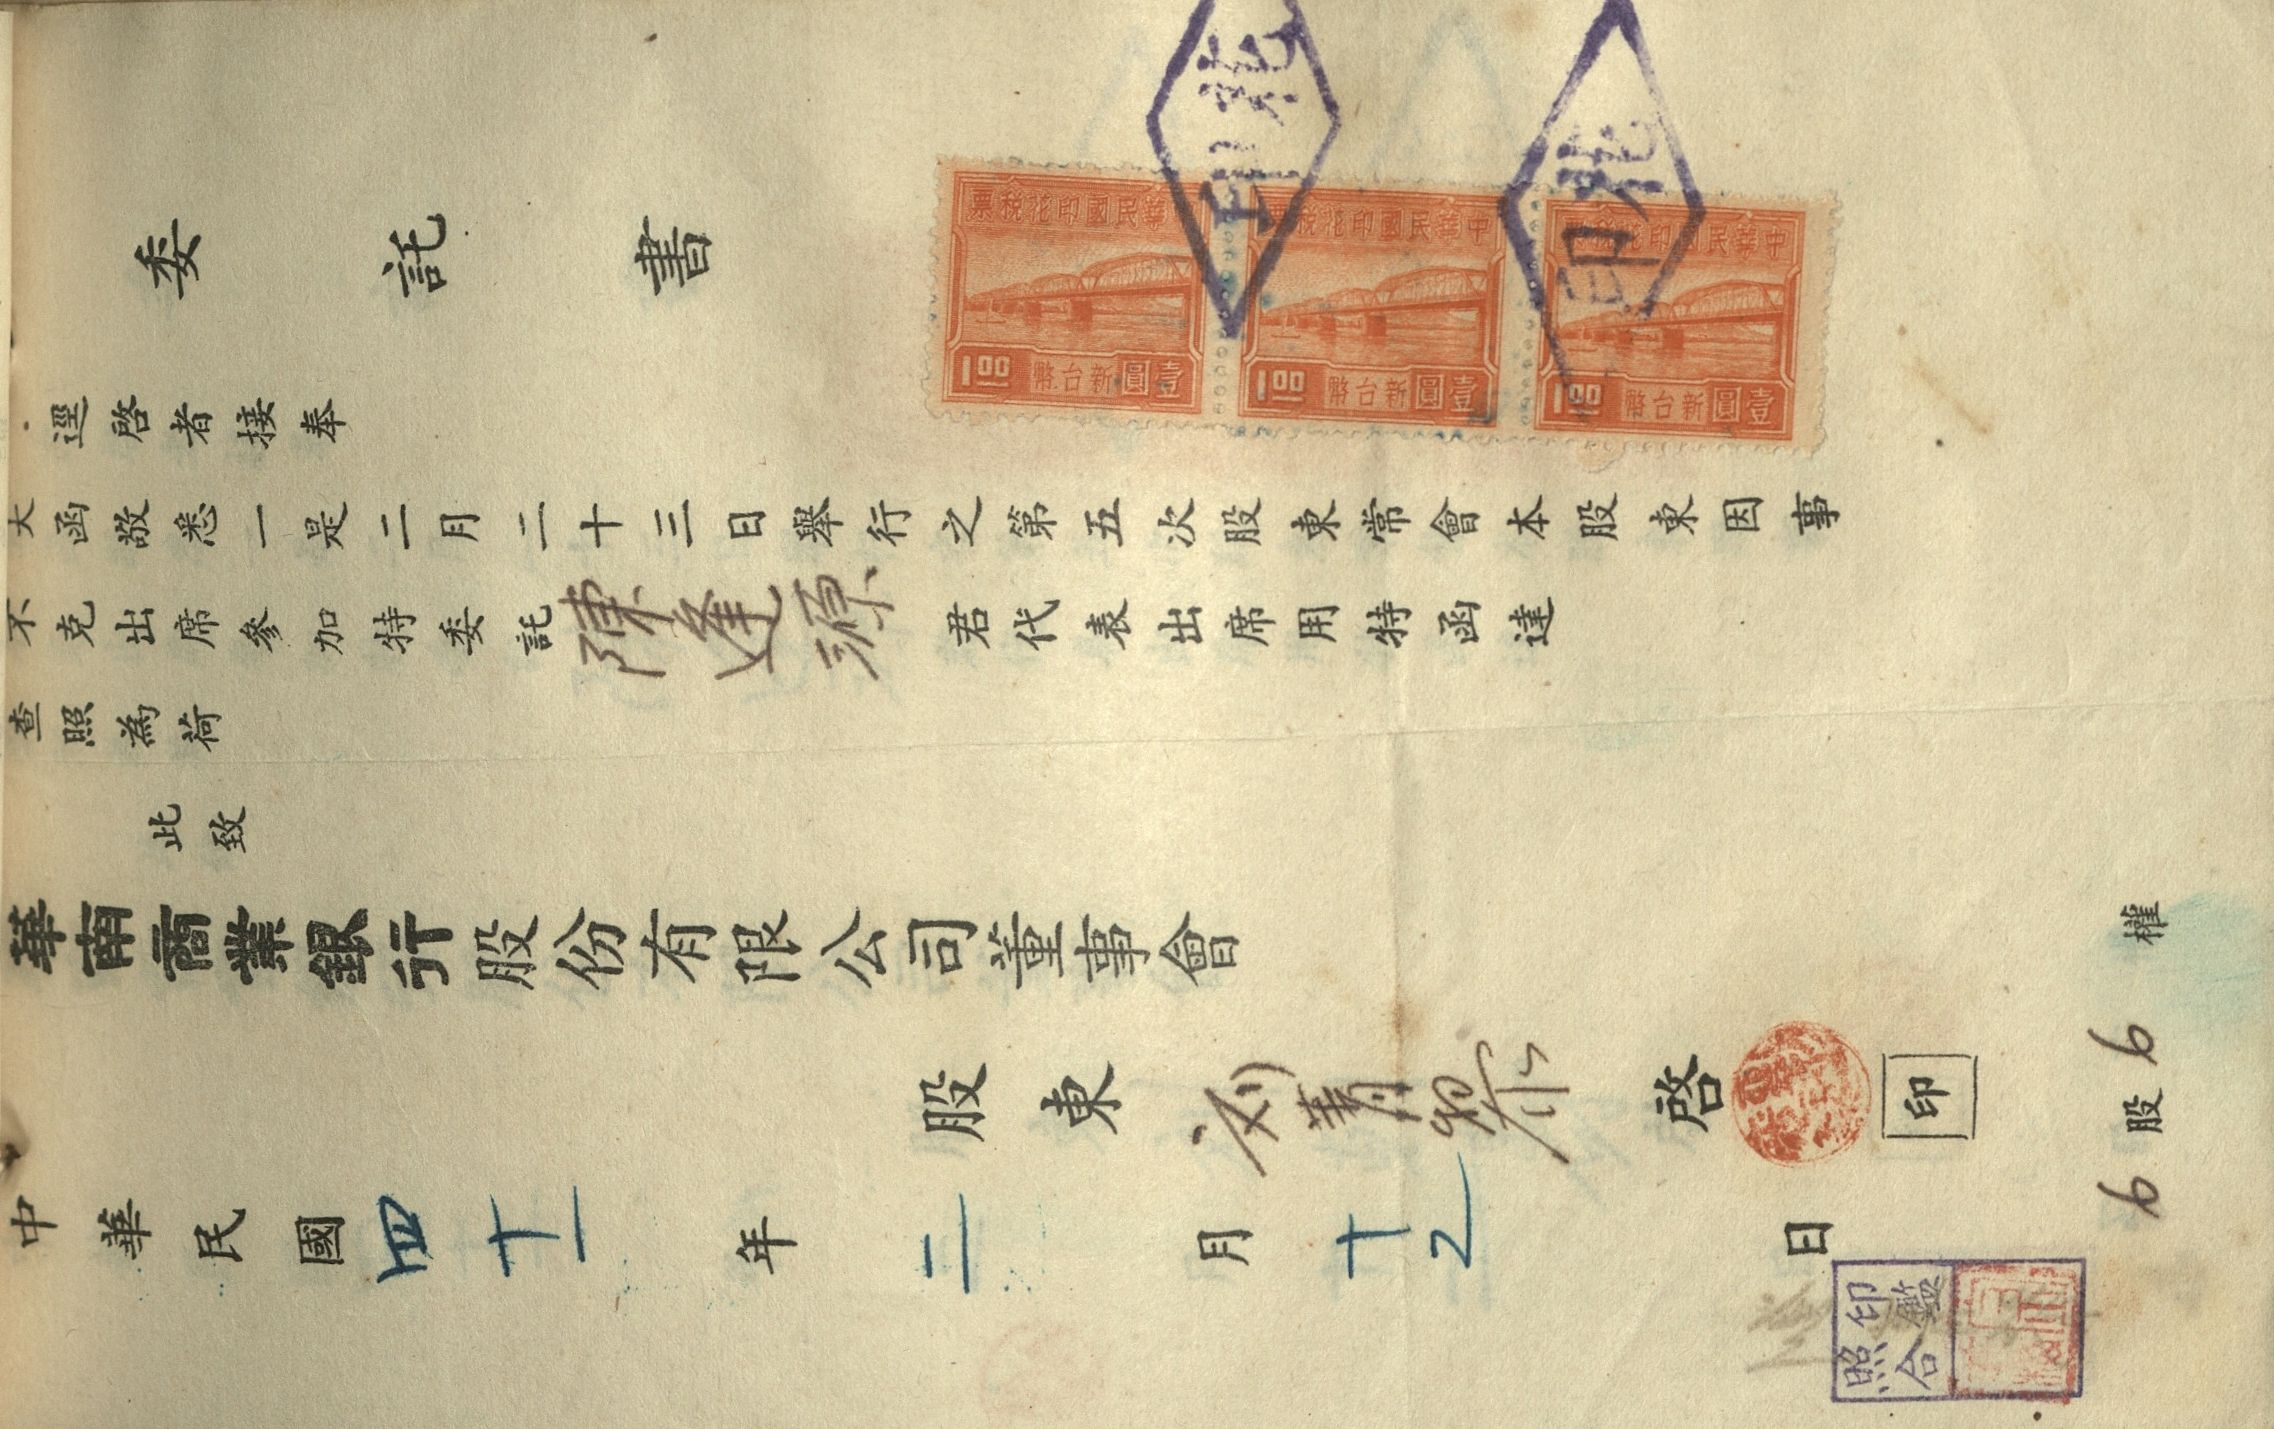 委託書
逕啓者接奉
大函敬悉一是二月二十三日舉行之第五次股東常會本股東因事
不克出席參加特委託陳逢源君代表出席用特函達
查照為荷
此致
華南商業銀行股份有限公司董事會
股東 啓
印
中華民國四十一年二月十 日
6股6權
華民國印花稅票
新台幣壹圓
1.00
中華民國印花稅票
新台幣壹圓
1.00
中華民國印花稅票
新台幣壹圓
1.00
印花
印花
印鑑
照合